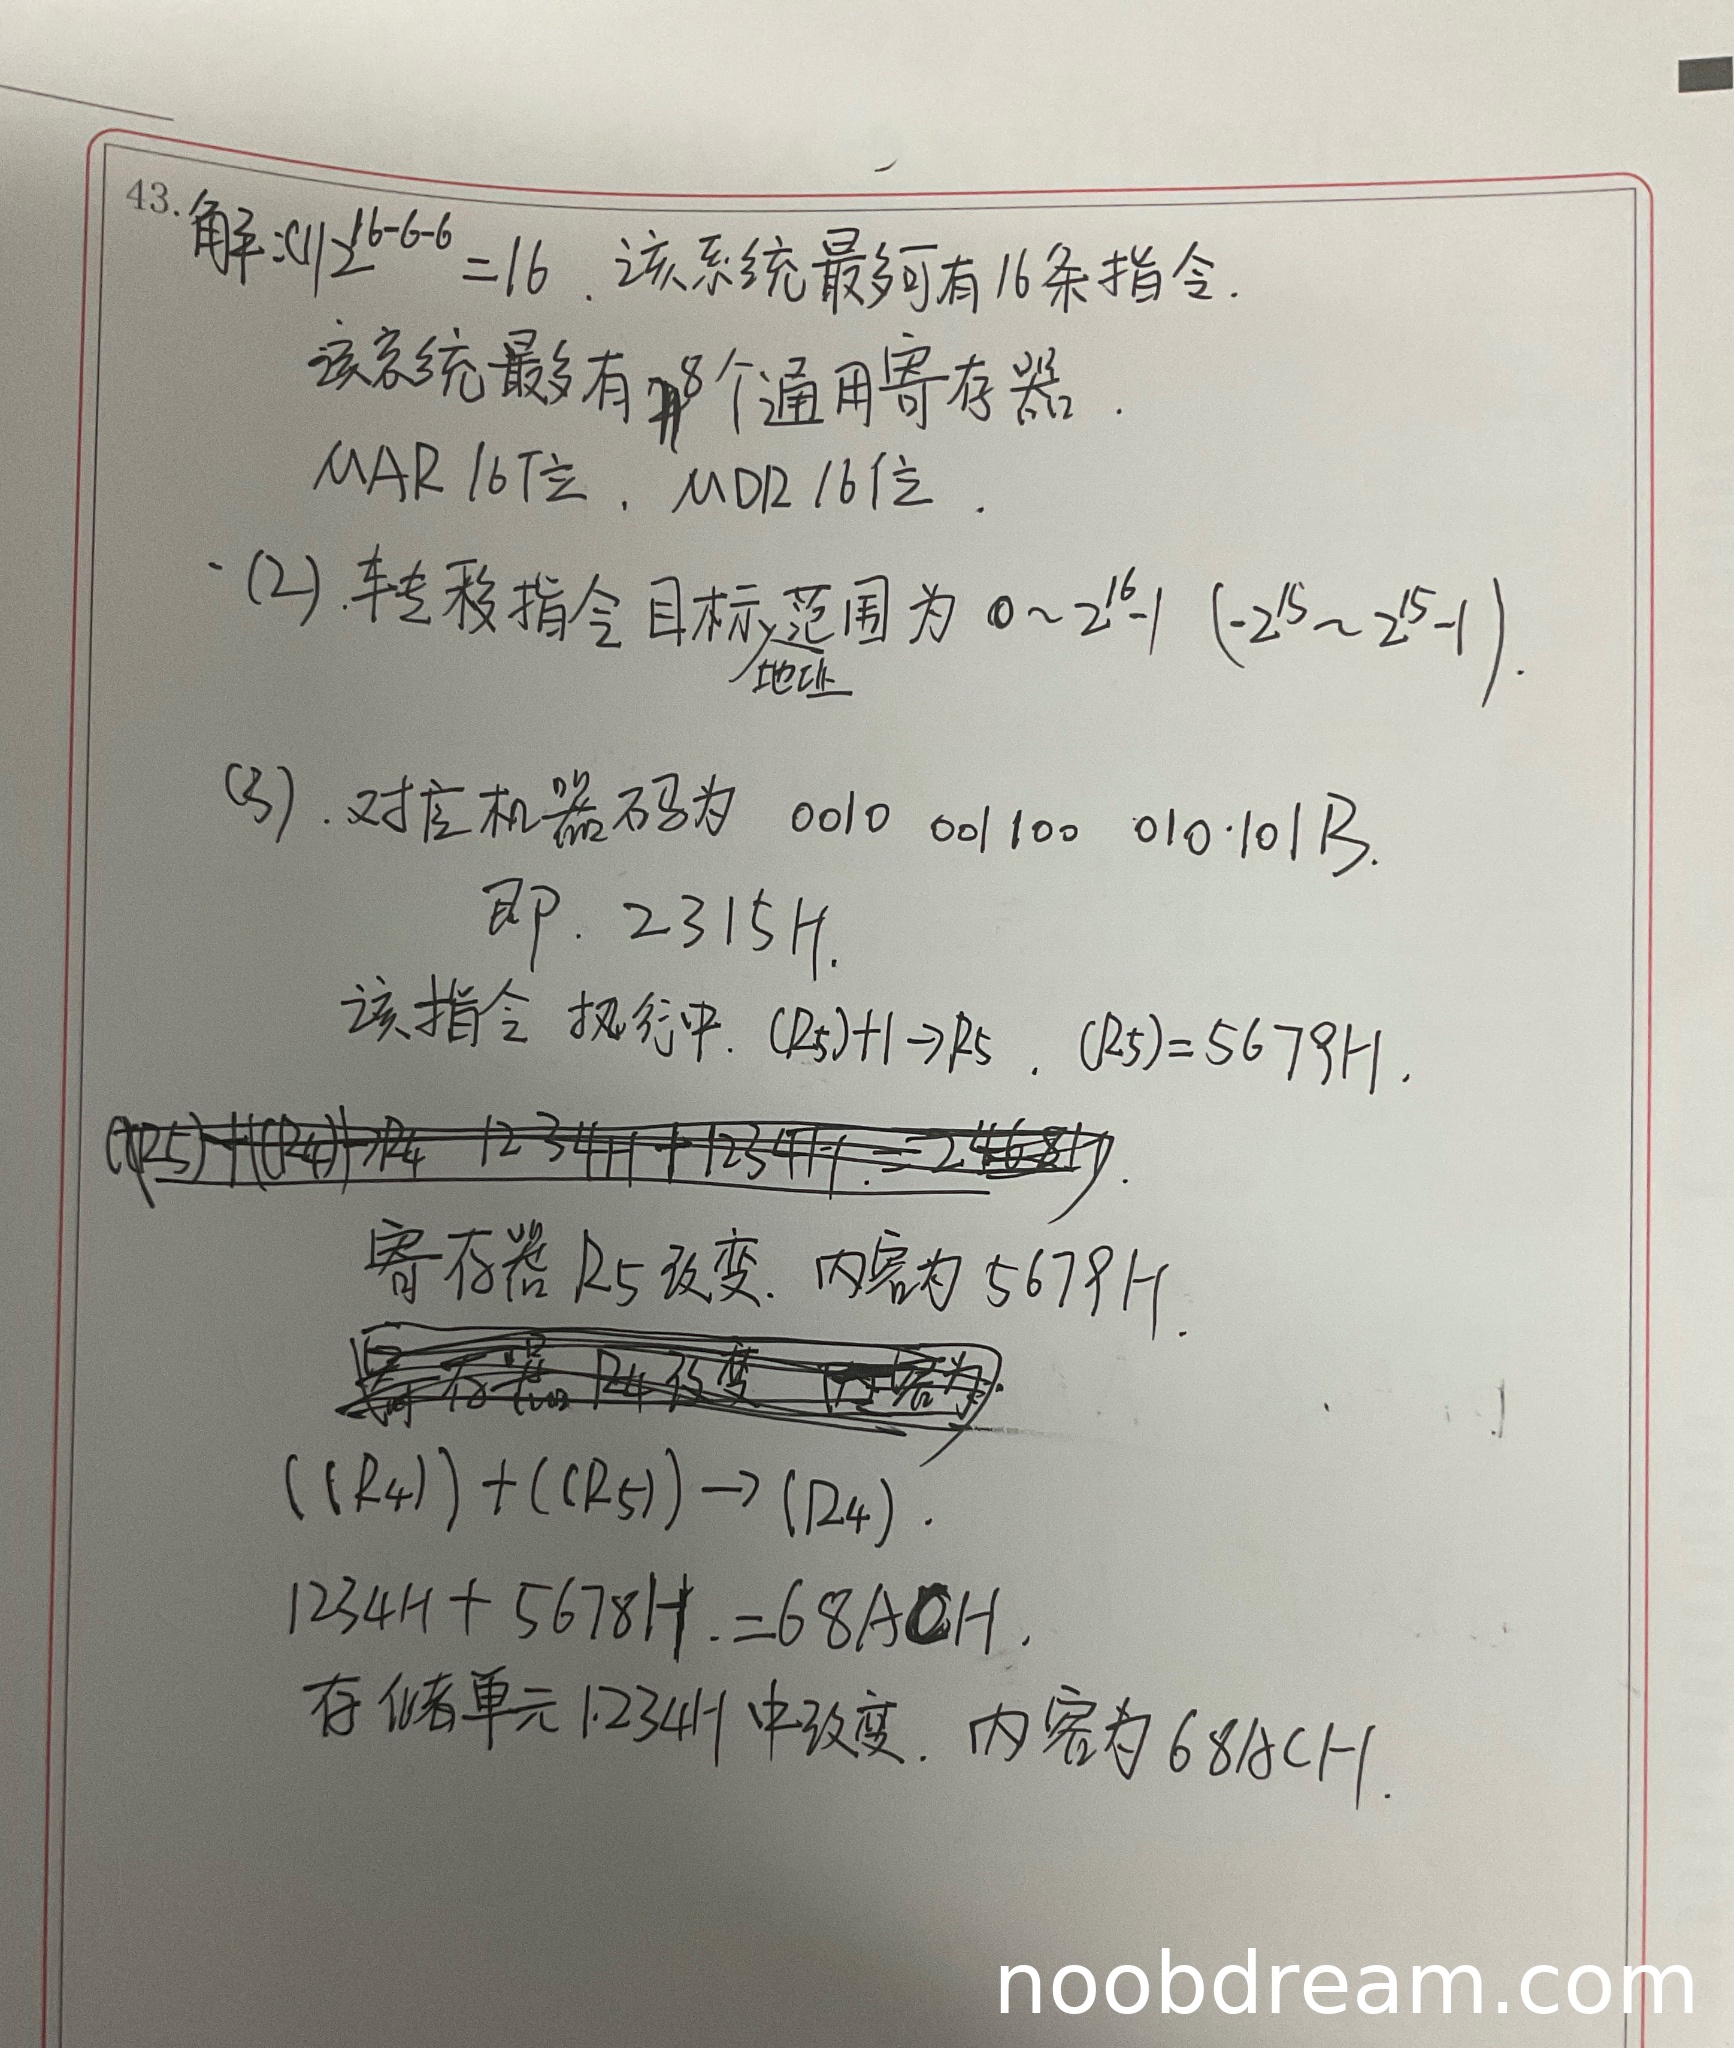 43.解:(1)2^16-6-6=16.该系统最多可有16条指令.
该系统最多有8个通用寄存器.
MAR 16位. MDR 16位.
(2).转移指令目标地址范围为 0~2^16-1 (-2^15~2^15-1).
(3).对应机器码为 0010 001100 010101B.
即. 2315H.
该指令执行中. (R5)+1→R5. (R5)=5679H.
((R5)+(R4))→R4 1234H+1234H.=2468H.
寄存器R5改变.内容为5679H.
寄存器R4改变 内容为.
((R4))+((R5))→(R4).
1234H+5678H.=68ACH.
存储单元1234H中改变.内容为68ACH.
noobdream.com